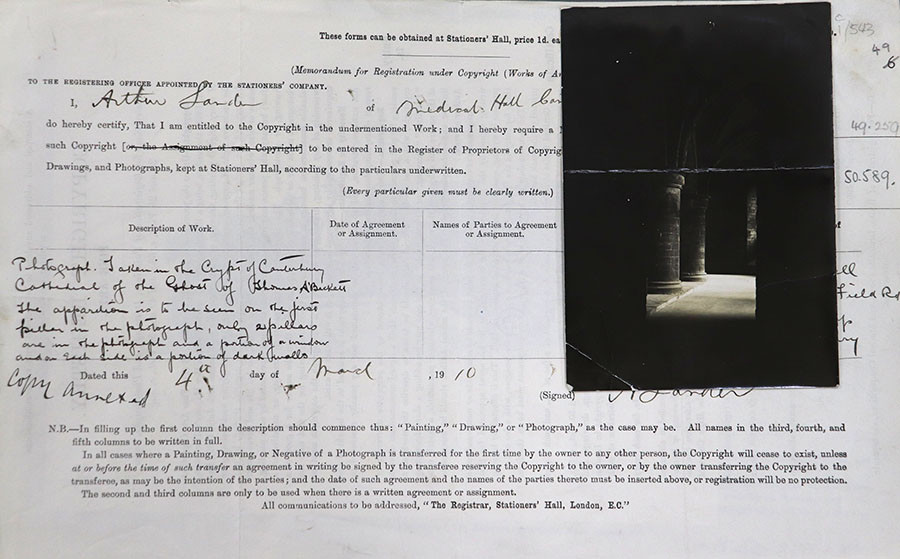 These forms can be obtained at Stationers' Hall, price 1d. ea
(Memorandum for Registration under Copyright (Works of Ar
TO THE REGISTERING OFFICER APPOINTED BY THE STATIONERS' COMPANY.
I, Arthur Lander of Medical Hall Can
do hereby certify, That I am entitled to the Copyright in the undermentioned Work; and I hereby require a
such Copyright [or, the Assignment of such Copyright] to be entered in the Register of Proprietors of Copyrig
Drawings, and Photographs, kept at Stationers' Hall, according to the particulars underwritten.
(Every particular given must be clearly written.)
/543
49
6
49.259
50.589.
Description of Work.
Date of Agreement
or Assignment.
Names of Parties to Agreement
or Assignment.
of
Photograph. Taken in the Crypt of Canterbury
Cathedral of the Ghost of Thomas A'Beckett
The apparition is to be seen on the first
pillar in the photograph, only 2 pillars
are in the photograph and a portion of a window
and on each side is a portion of dark walls
ell
Field Ro
Dated this 4th day of March, 1910
Copy Annexed
(Signed) A Lander
N.B.—In filling up the first column the description should commence thus: "Painting," "Drawing," or "Photograph," as the case may be. All names in the third, fourth, and
fifth columns to be written in full.
In all cases where a Painting, Drawing, or Negative of a Photograph is transferred for the first time by the owner to any other person, the Copyright will cease to exist, unless
at or before the time of such transfer an agreement in writing be signed by the transferee reserving the Copyright to the owner, or by the owner transferring the Copyright to the
transferee, as may be the intention of the parties; and the date of such agreement and the names of the parties thereto must be inserted above, or registration will be no protection.
The second and third columns are only to be used when there is a written agreement or assignment.
All communications to be addressed, "The Registrar, Stationers' Hall, London, E.C."